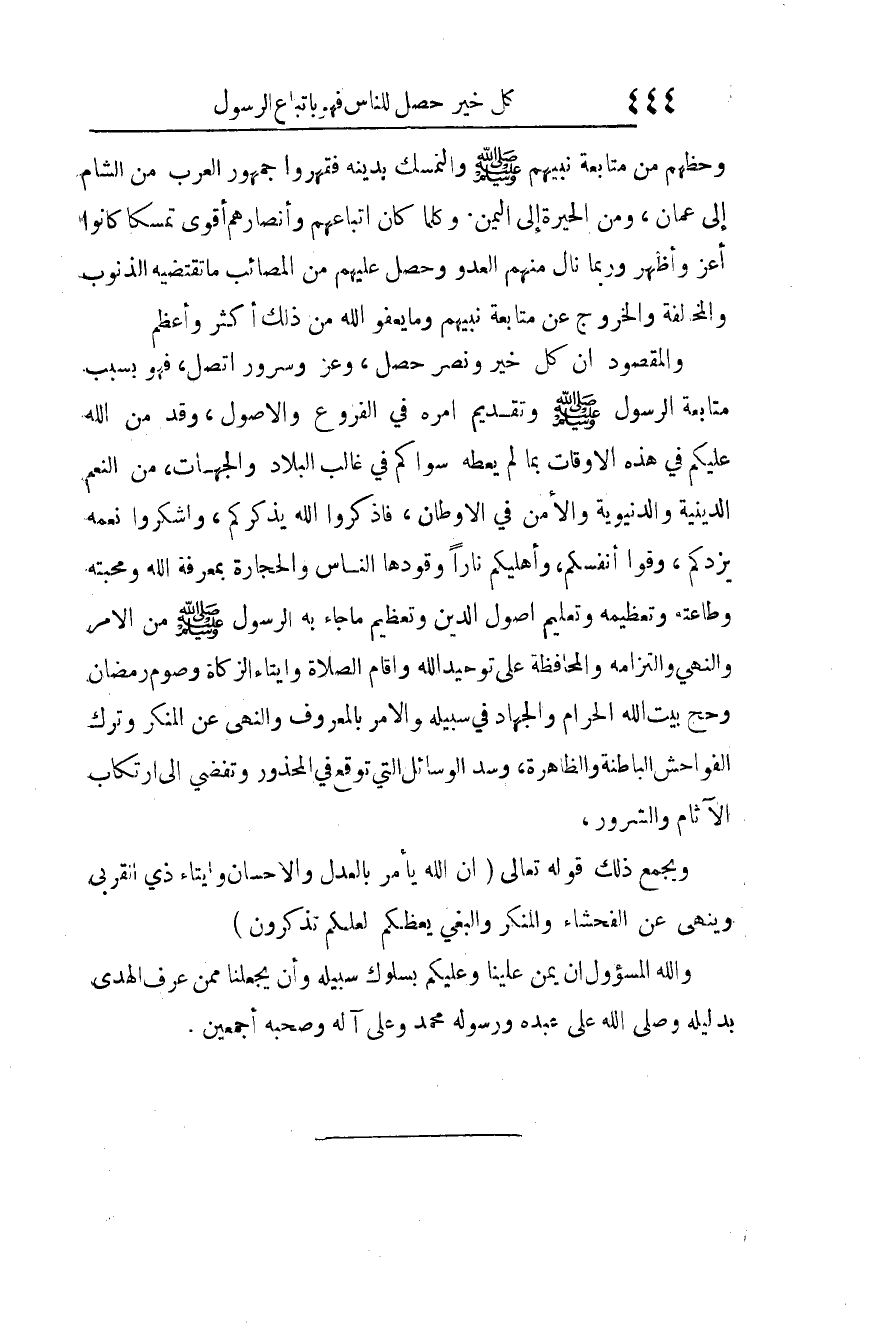 ٤٤٤ كل خير حصل للناس فهو باتباع الرسول
وحظهم من متابعة نبيهم ﷺ والتمسك بدينه فقهروا جمهور العرب من الشام
إلى عمان ، ومن الحيرة إلى اليمن . وكلما كان اتباعهم وأنصارهم أقوى تمسكا كانوا
أعز وأظهر وربما نال منهم العدو وحصل عليهم من المصائب ماتقتضيه الذنوب
والمخالفة والخروج عن متابعة نبيهم ومايعفو الله من ذلك أكثر وأعظم
والمقصود ان كل خير ونصر حصل ، وعز وسرور اتصل ، فهو بسبب
متابعة الرسول ﷺ وتقديم امره في الفروع والاصول ، وقد من الله
عليكم في هذه الاوقات بما لم يعطه سواكم في غالب البلاد والجهات، من النعم
الدينية والدنيوية والأمن في الاوطان ، فاذكروا الله يذكركم ، واشكروا نعمه
يزدكم ، وقوا أنفسكم، وأهليكم ناراً وقودها الناس والحجارة بمعرفة الله ومحبته
وطاعته وتعظيمه وتعليم اصول الدين وتعظيم ماجاء به الرسول ﷺ من الامر
والنهي والتزامه والمحافظة على توحيد الله واقام الصلاة وايتاء الزكاة وصوم رمضان
وحج بيت الله الحرام والجهاد في سبيله والامر بالمعروف والنهى عن المنكر وترك
الفواحش الباطنة والظاهرة، وسد الوسائل التي توقع في المحذور وتفضي الى ارتكاب
الآثام والشرور ،
ويجمع ذلك قوله تعالى ( ان الله يأمر بالعدل والاحسان وايتاء ذي القربى
وينهى عن الفحشاء والمنكر والبغي يعظكم لعلكم تذكرون )
والله المسؤول ان يمن علينا وعليكم بسلوك سبيله وأن يجعلنا ممن عرف الهدى
بدليله وصلى الله على عبده ورسوله محمد وعلى آله وصحبه أجمعين .